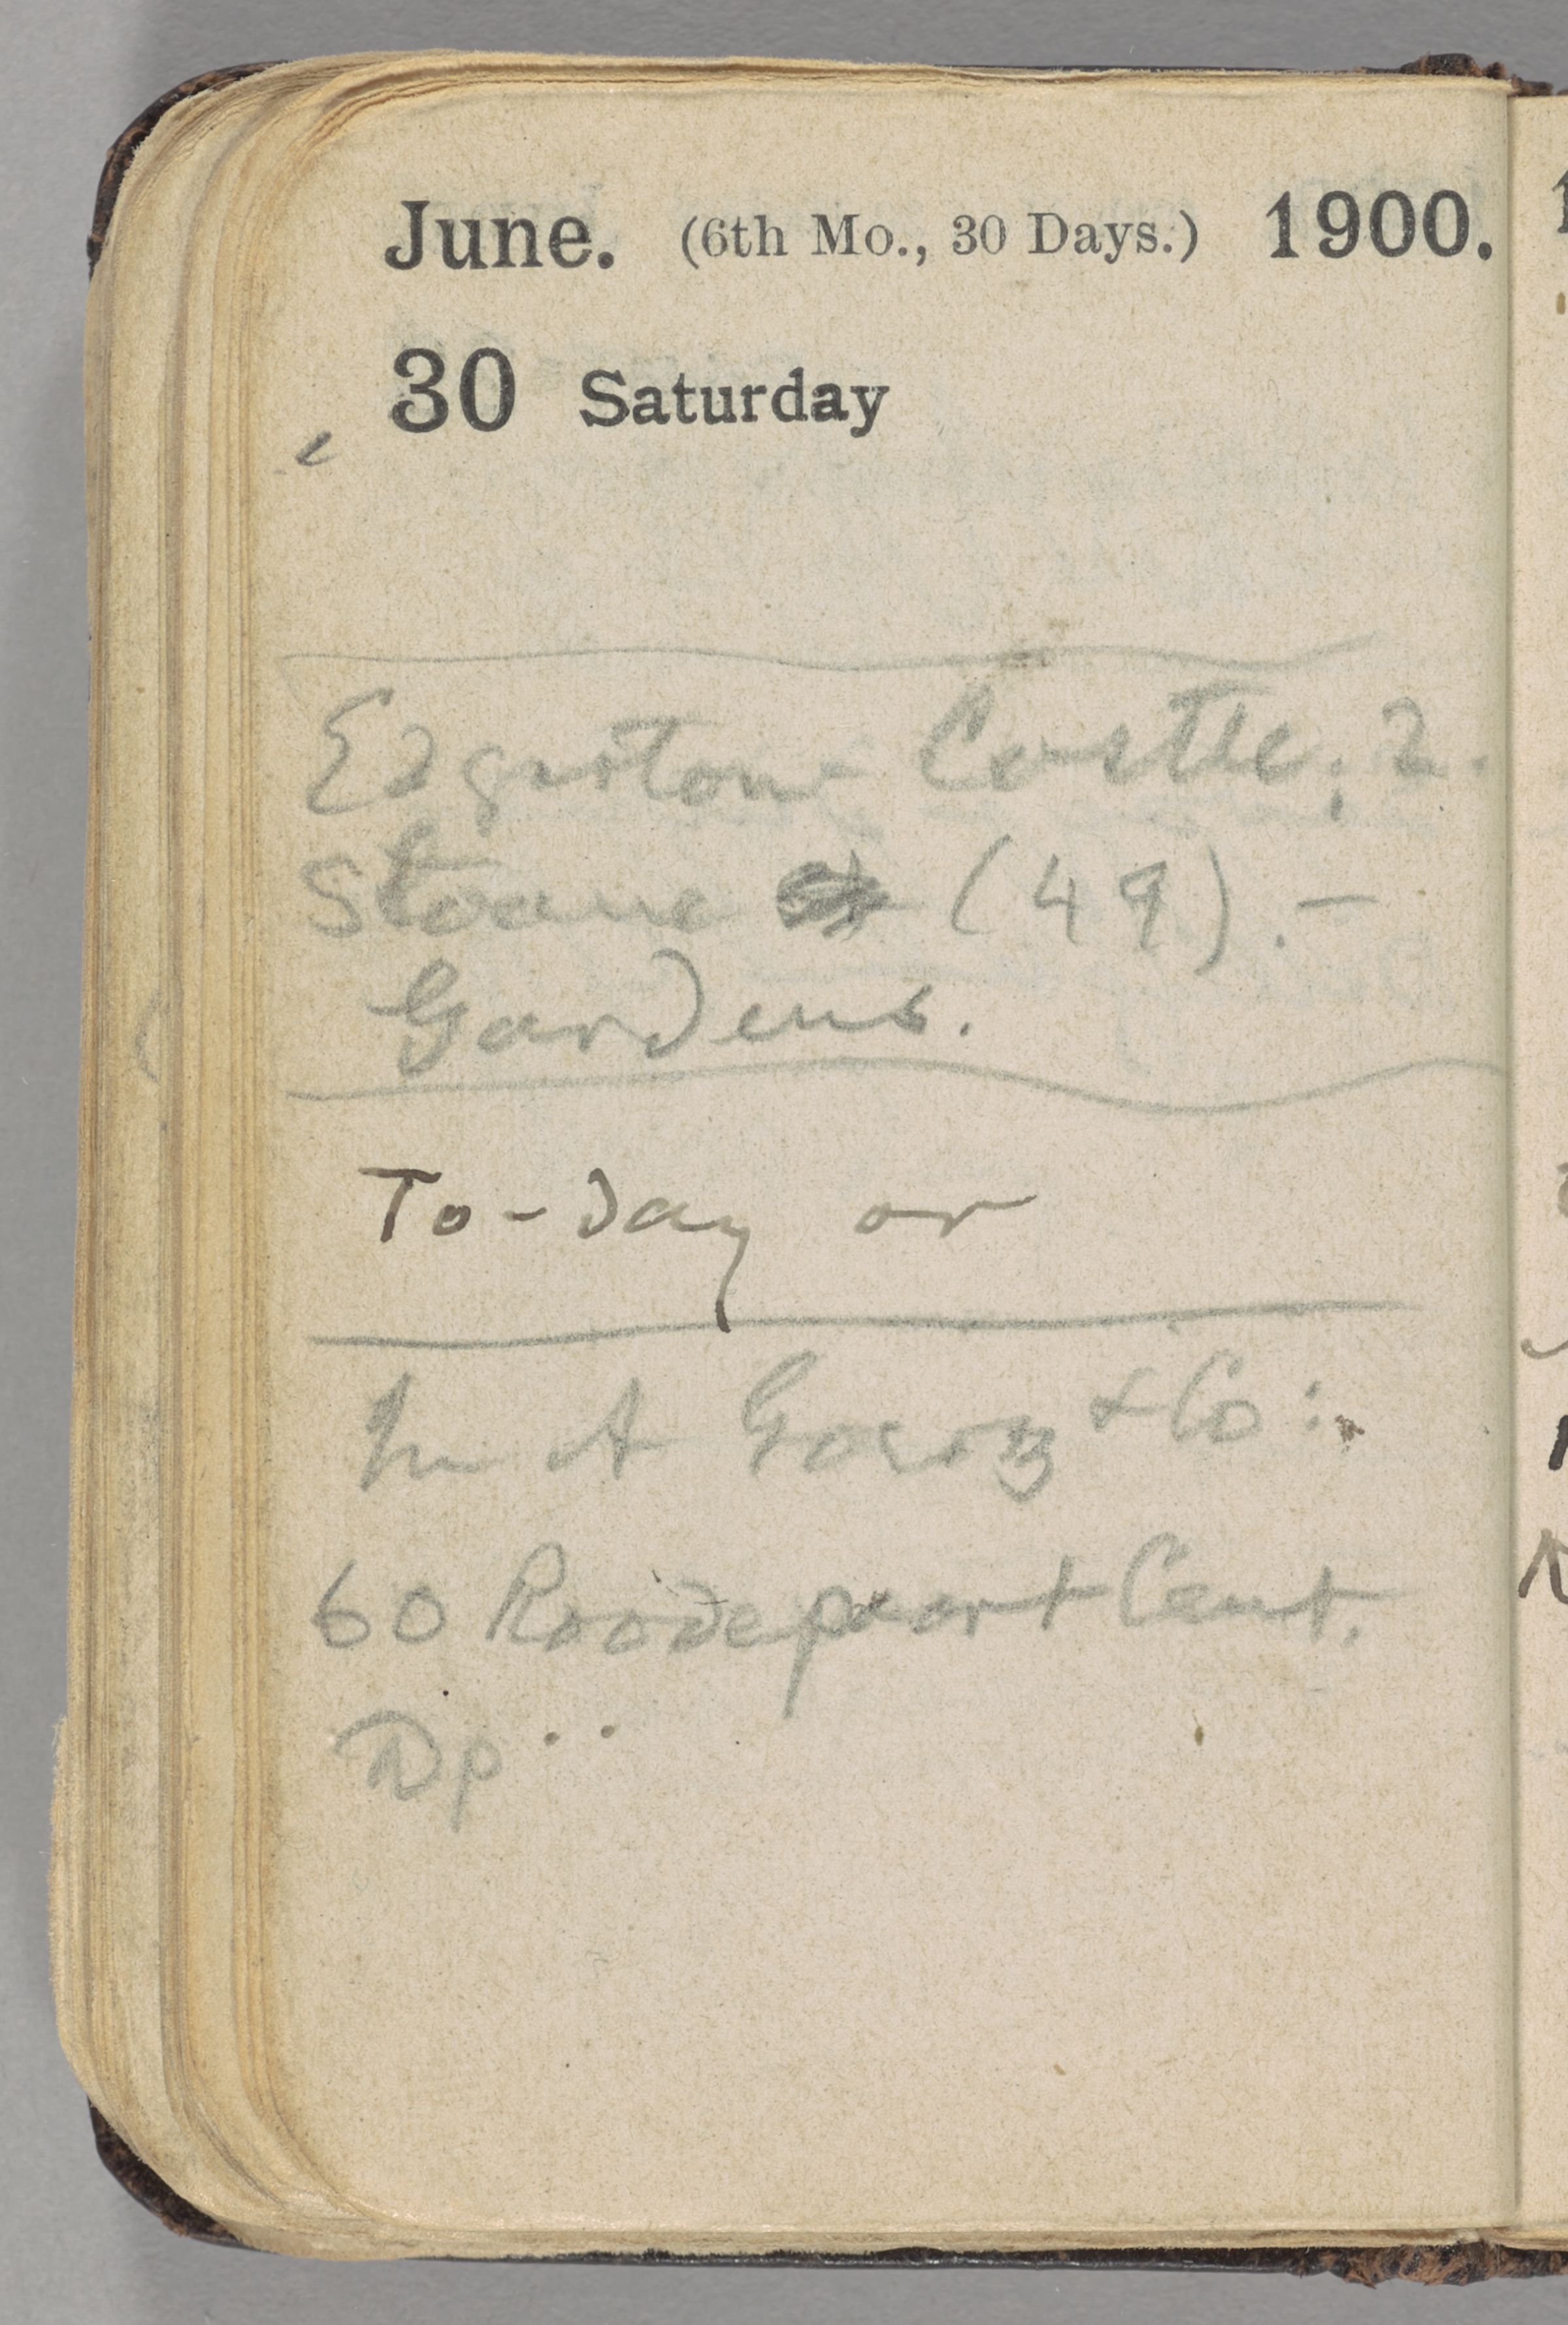 June. (6th Mo., 30 Days.) 1900.
30 Saturday
Castle; 2.
Sloane (49). –
Gardens.
To-day or
A Goerz & Co:
60 Roodepoort Cent.
Dp